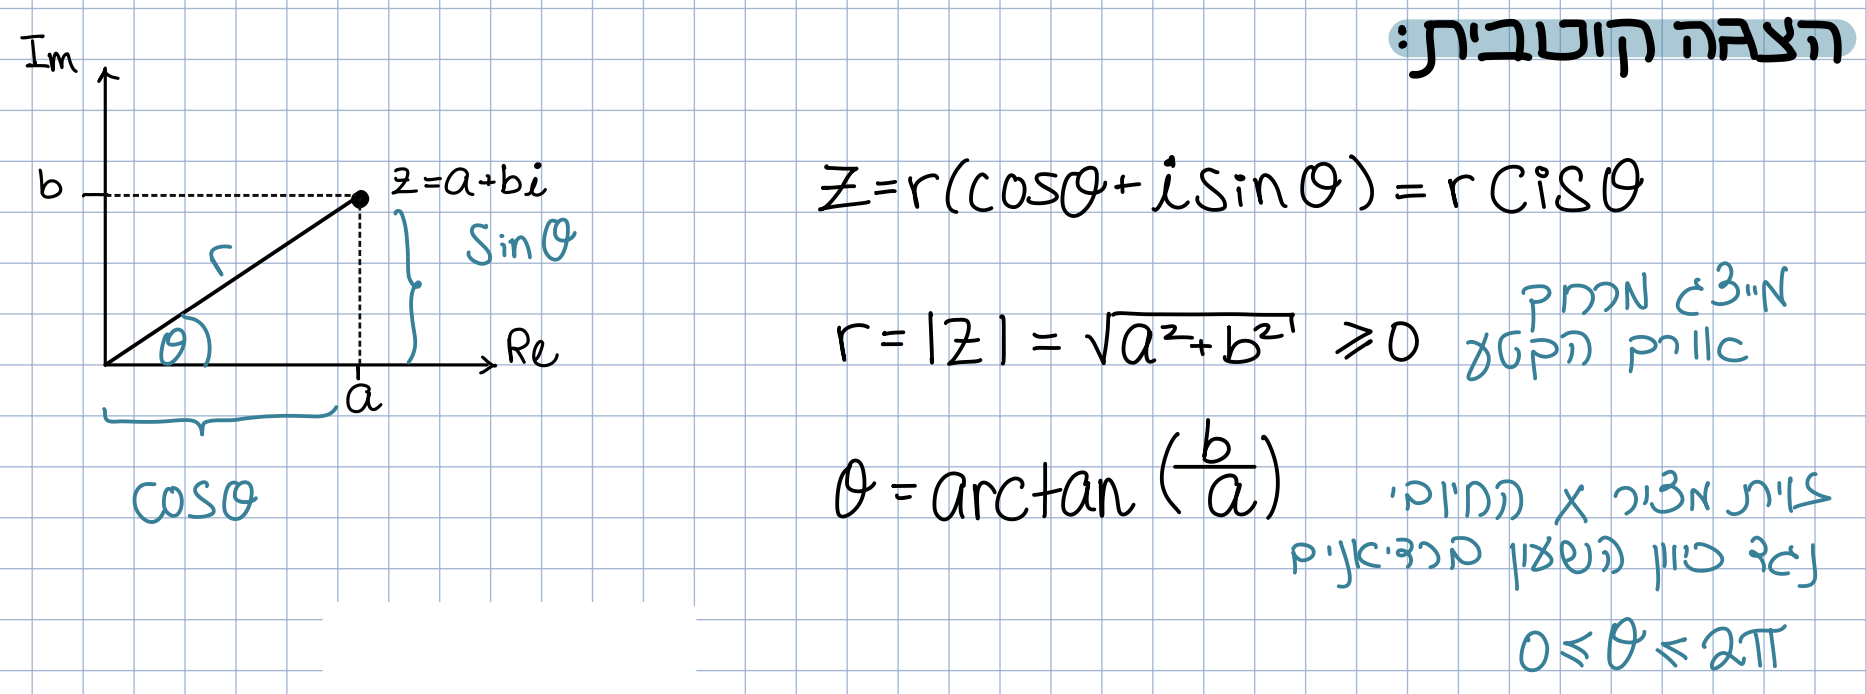 הצגה קוטבית:
Im
b
z=a+bi
sinθ
r
θ
Re
a
cosθ
z=r(cosθ+isinθ)=rcisθ
r=|z|=√a²+b² ⩾0
מייצג מרחק
אורך הקטע
θ=arctan(b/a)
זוית מציר x החיובי
נגד כיוון השעון ברדיאנים
0⩽θ⩽2π